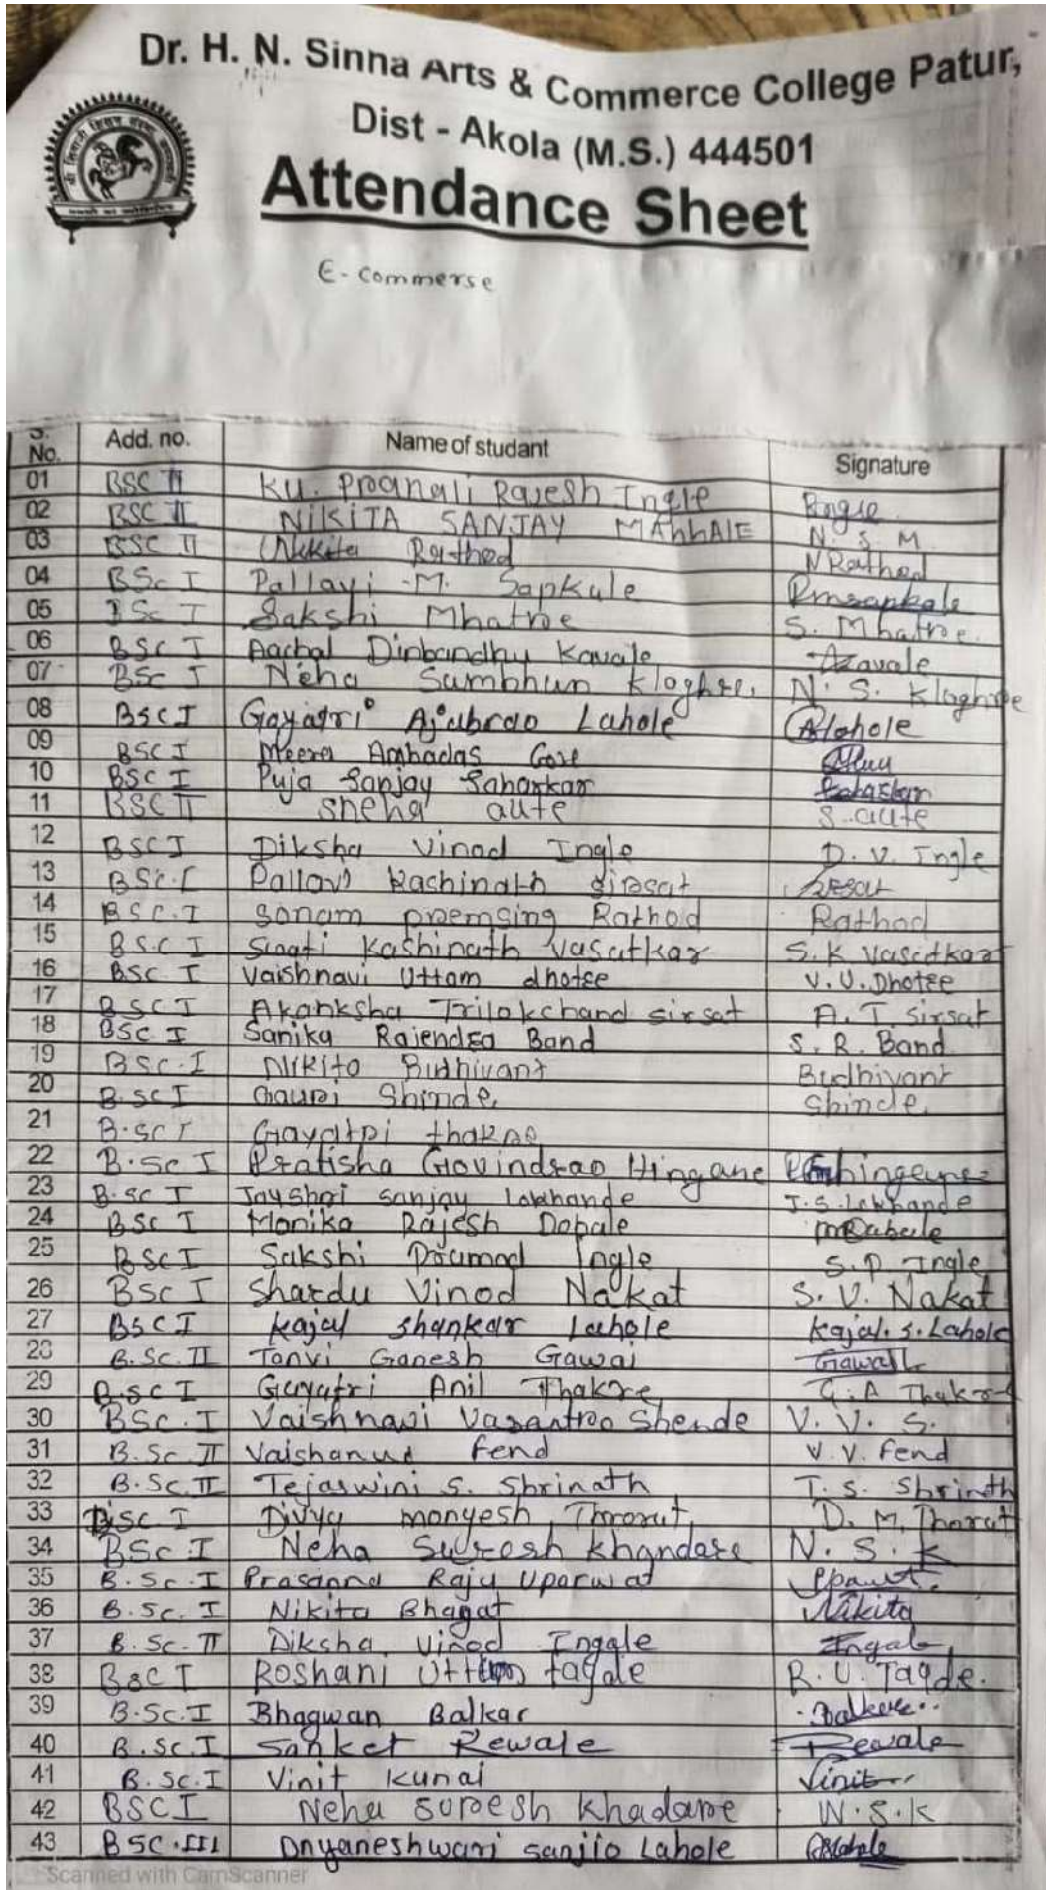 Dr. H. N. Sinna Arts & Commerce College Patur,
Dist - Akola (M.S.) 444501
Attendance Sheet
E-commerse
S. No. Add. no. Name of studant Signature
01 BSC II Ku. Pranali Rajesh Ingle
02 BSC II NIKITA SANJAY MAhhAlE N. S. M
03 BSC II Nikita Rathod NRathod
04 BSc I Pallavi M. Sapkale Pmsapkale
05 BSc I Sakshi Mhatre S. Mhatre.
06 BSc I Aachal Dinbandhu Kavale
07 BSc I Neha N. S.
08 BSC I Gayatri Ajabrao Lahole
09 BSC I Meera Ambadas Gose
10 BSC I Puja Sanjay Saharkar
11 BSC II Sneha aute S. aute
12 BSC I Diksha Vinod Ingle D. V. Ingle
13 BSc. I Pallavi Kashinath Sirsat
14 BSC. I Sonam premsing Rathod Rathod
15 B.S.C I Kashinath Vasatkar S. K Vasatkar
16 BSC I Vaishnavi Uttam dhotre V. U. Dhotre
17 BSC I Akanksha Trilokchand sirsat A. T. Sirsat
18 BSC I Sanika Rajendra Band S. R. Band
19 BSC. I Nikita Budhivant Budhivant
20 B.SC I Gauri Shinde Shinde
21 B.SC I Gayatri thakre
22 B.Sc I Pratisha Govindrao Hingane
23 B.SC I Jayshri Sanjay lokhande J.S. Lokhande
24 BSC I Monika Rajesh Dabale
25 BSC I Sakshi Pramod Ingle S.P. Ingle
26 BSC I Shardu Vinod Nakat S. V. Nakat
27 BSC I Kajal Shankar Lahole Kajal. S. Lahole
28 B.Sc. II Tanvi Ganesh Gawai
29 B.SC I Gayatri Anil Thakre G. A Thakre
30 BSC. I Vaishnavi Vasantrao Shende V. V. S.
31 B.Sc. II Fend V. V. Fend
32 B.Sc. II Tejaswini S. Shrinath T. S. Shrinath
33 BSC. I Divya D. M. Thorat
34 BSC. I Neha Suresh Khandare N. S. K
35 B.Sc. I Prasanna Raju Uparwat
36 B.Sc. I Nikita Bhagat Nikita
37 B.Sc. II Diksha Vinod Ingale Ingale
38 BSC I Roshani Uttam tayde R. U. Tayde.
39 B.Sc. I Bhagwan Balkar
40 B.Sc. I Sanket Rewale Rewale
41 B.Sc. I Vinit Kunai Vinit
42 BSC I Neha Suresh Khadare N. S. K
43 BSC. III Dnyaneshwari Sanjio Lahole
Scanned with CamScanner